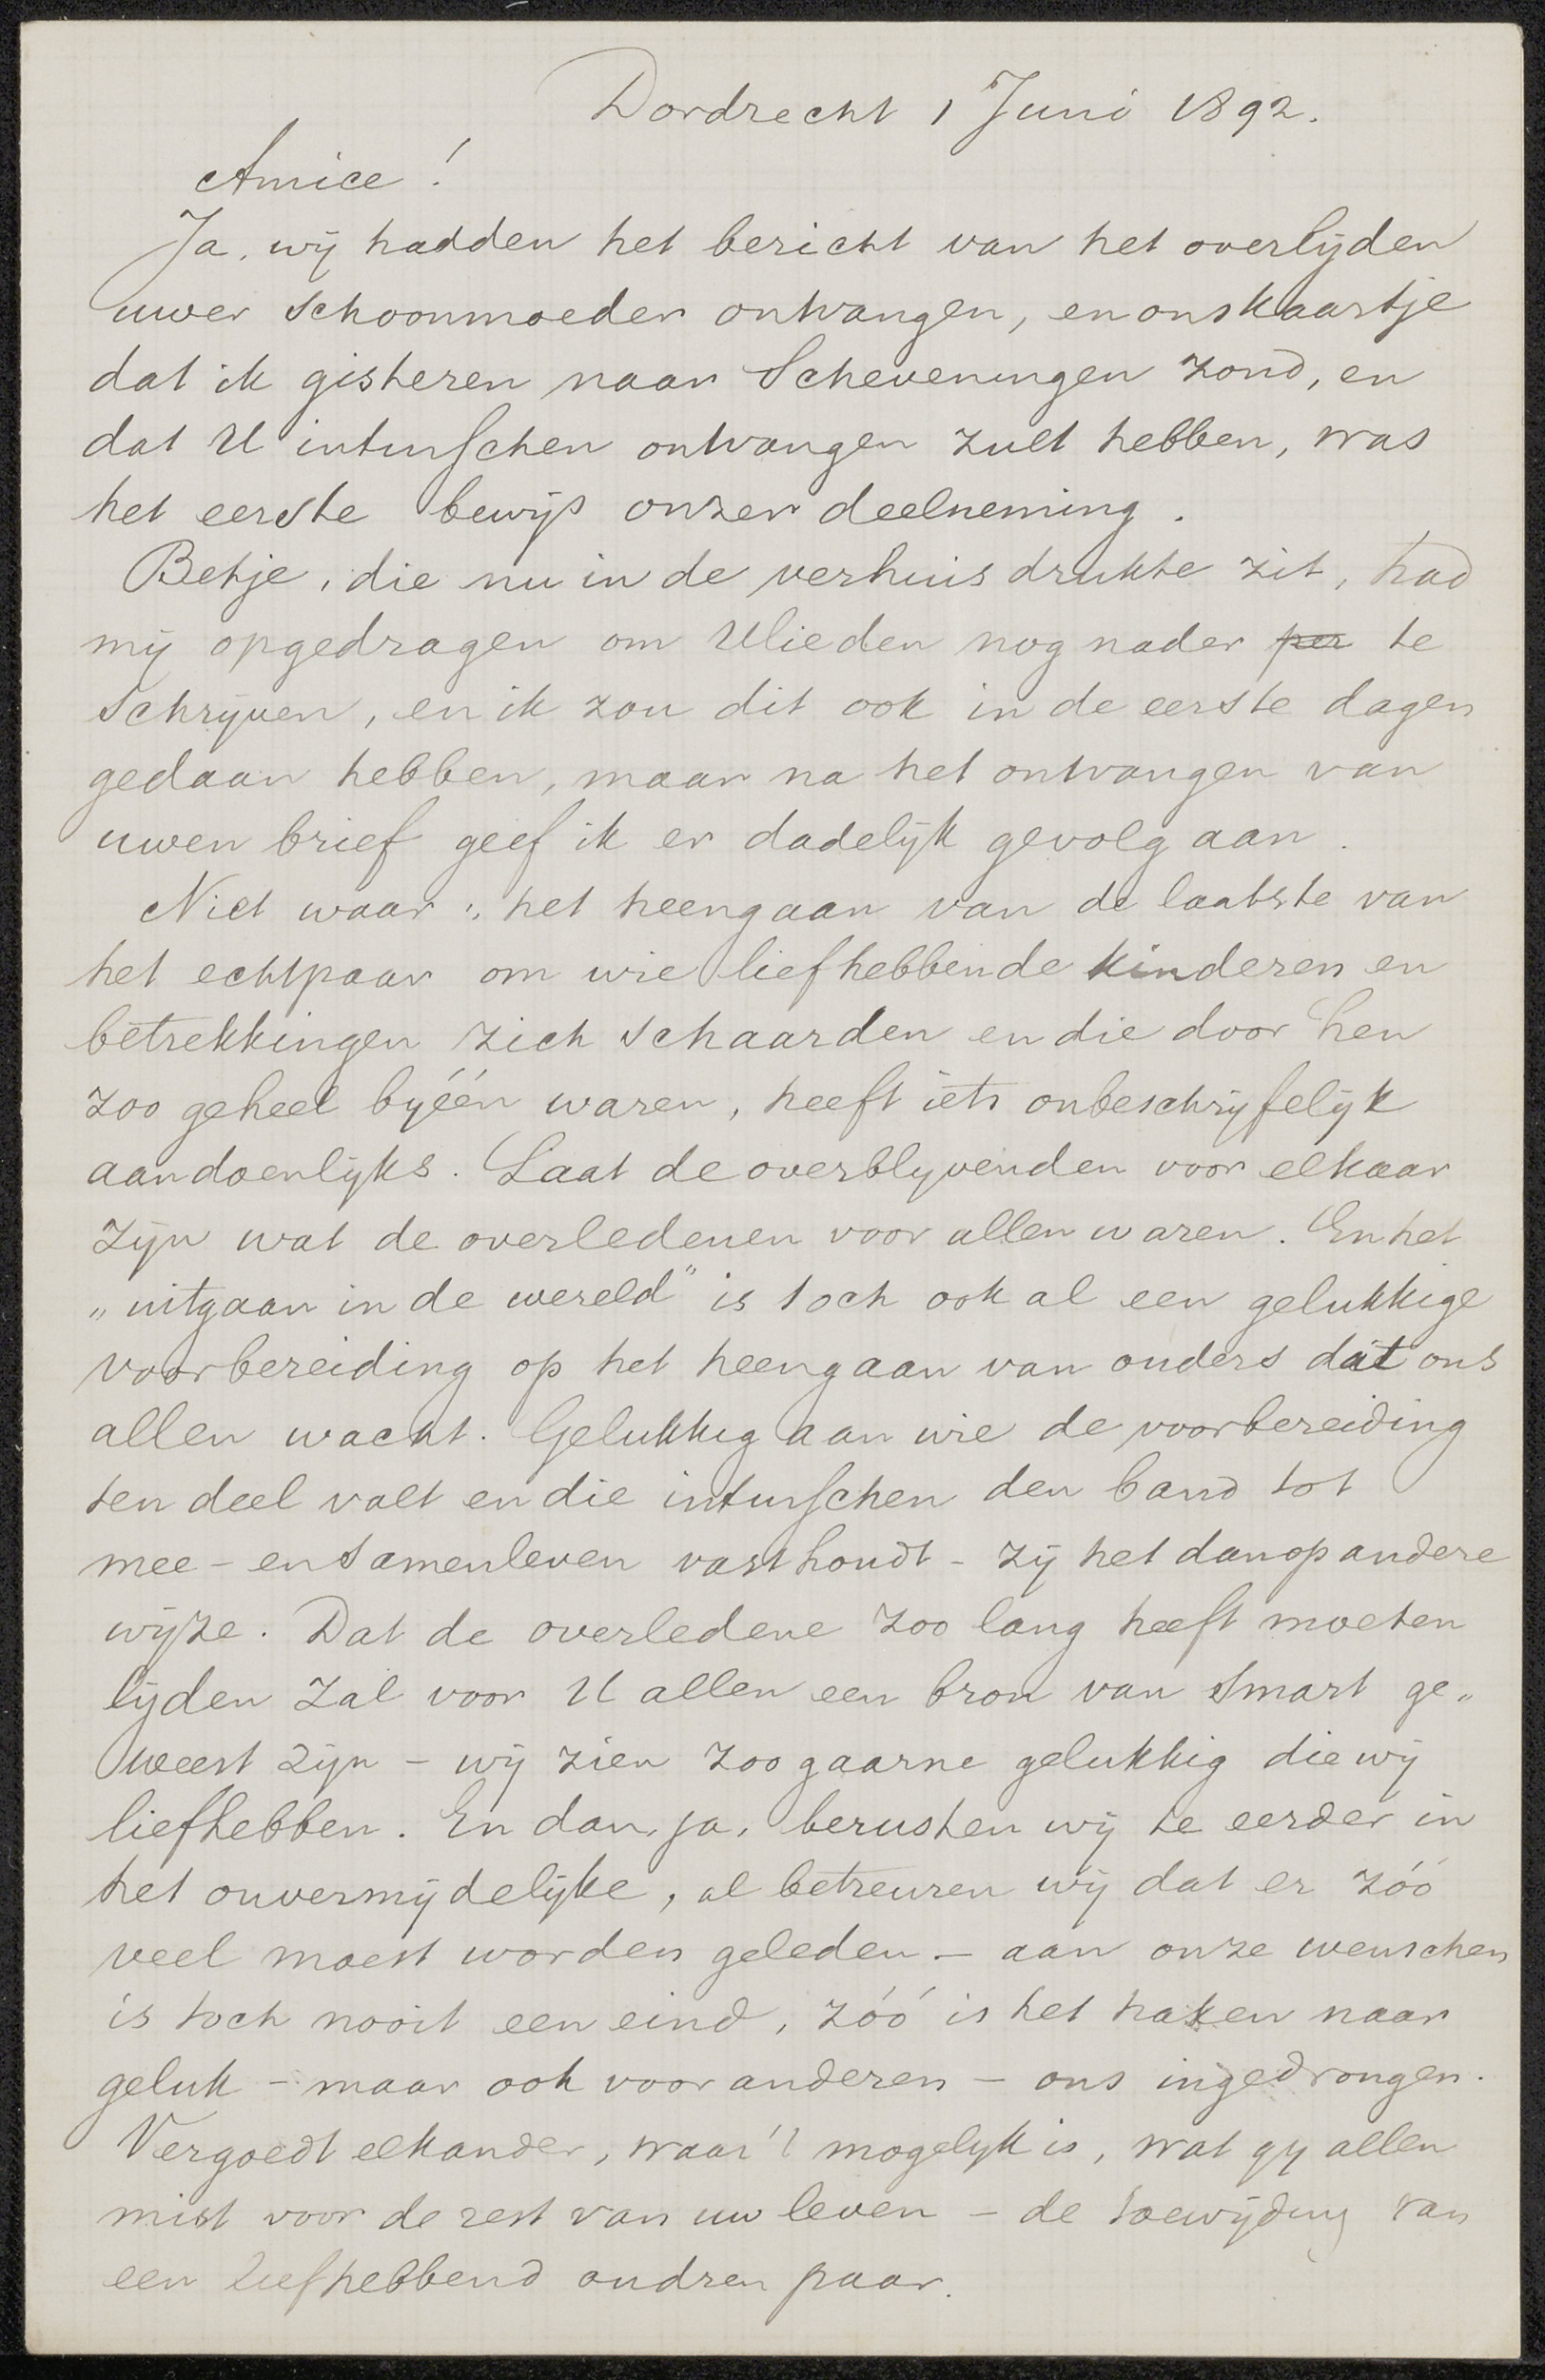 Dordrecht 1 Juni 1892.
Amice!
Ja, wij hadden het bericht van het overlijden
uwer schoonmoeder ontvangen, en ons kaartje
dat ik gisteren naar Scheveningen zond, en
dat U intusschen ontvangen zult hebben, was
het eerste bewijs onzer deelneming.
Betje, die nu in de verhuis drukte zit, had
mij opgedragen om Ulieden nog nader per te
schrijven, en ik zou dit ook in de eerste dagen
gedaan hebben, maar na het ontvangen van
uwen brief geef ik er dadelijk gevolg aan.
Niet waar, het heengaan van de laatste van
het echtpaar om wie liefhebbende kinderen en
betrekkingen zich schaarden en die door hen
zoo geheel byéén waren, heeft iets onbeschrijfelijk
aandoenlijks. Laat de overblyvenden voor elkaar
zijn wat de overledenen voor allen waren. En het
„uitgaan in de wereld" is toch ook al een gelukkige
voorbereiding op het heengaan van ouders dat ons
allen wacht. Gelukkig aan wie de voorbereiding
ten deel valt en die intusschen den band tot
mee- en samenleven vasthoudt - zij het dan op andere
wijze. Dat de overledene zoo lang heeft moeten
lijden zal voor U allen een bron van smart ge„
weest zijn - wij zien zoo gaarne gelukkig die wij
liefhebben. En dan, ja, berusten wij te eerder in
het onvermijdelijke, al betreuren wij dat er zóó
veel moest worden geleden - aan onze wenschen
is toch nooit een eind, zóó is het haken naar
geluk - maar ook voor anderen - ons ingedrongen.
Vergoedt elkander, waar 't mogelyk is, wat gy allen
mist voor de rest van uw leven - de toewijding van
een liefhebbend oudren paar.